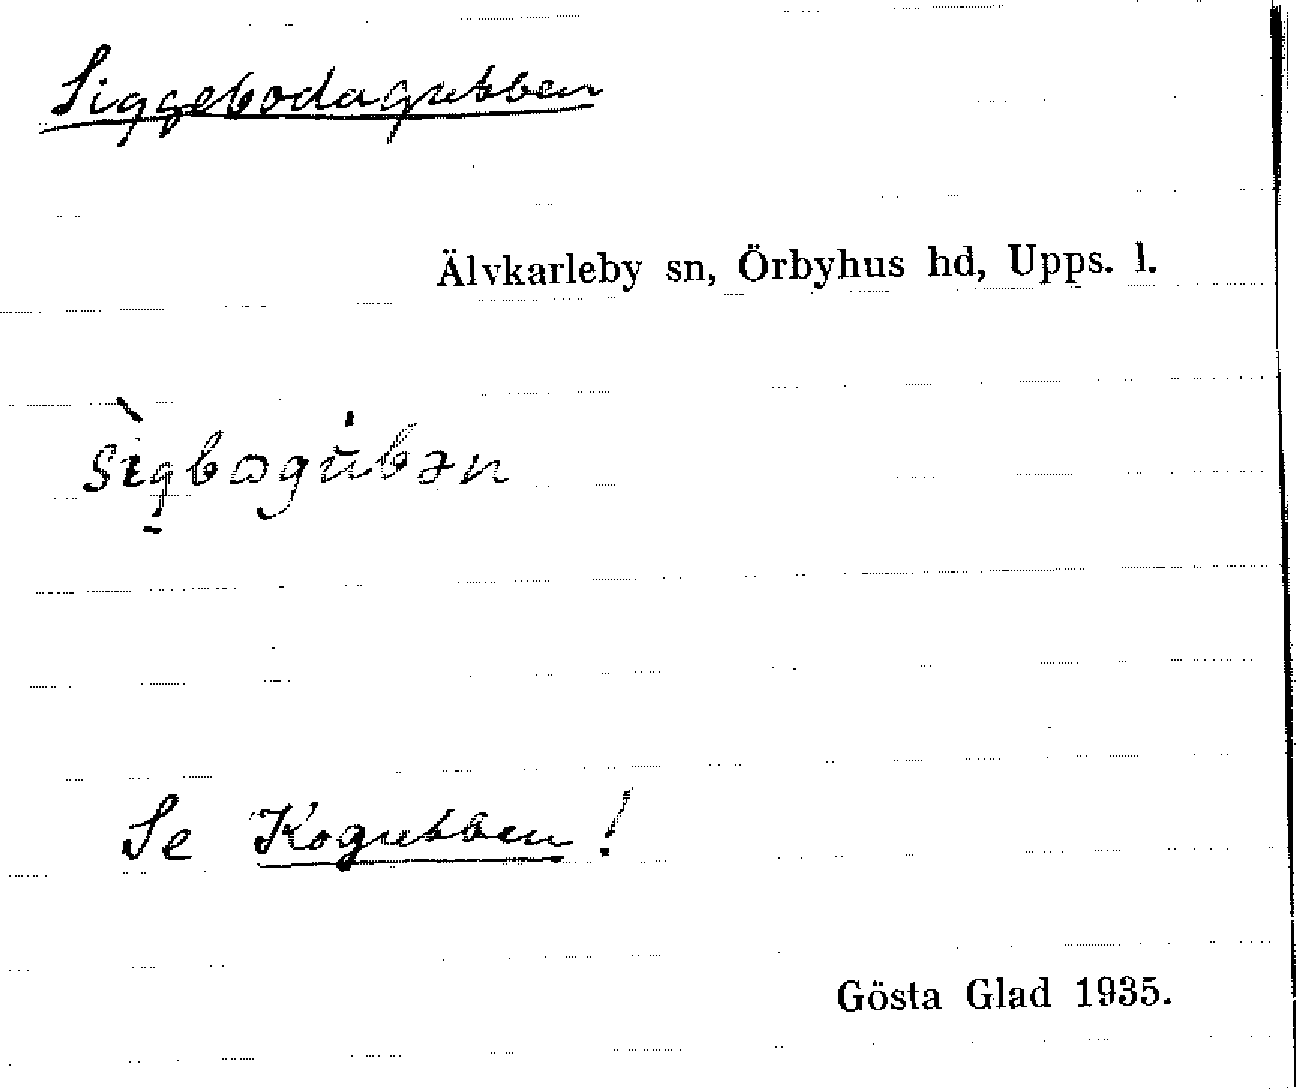 Siggebodagubben
Älvkarleby sn, Örbyhus hd, Upps. l.
Se Kogubben!
Gösta Glad 1935.